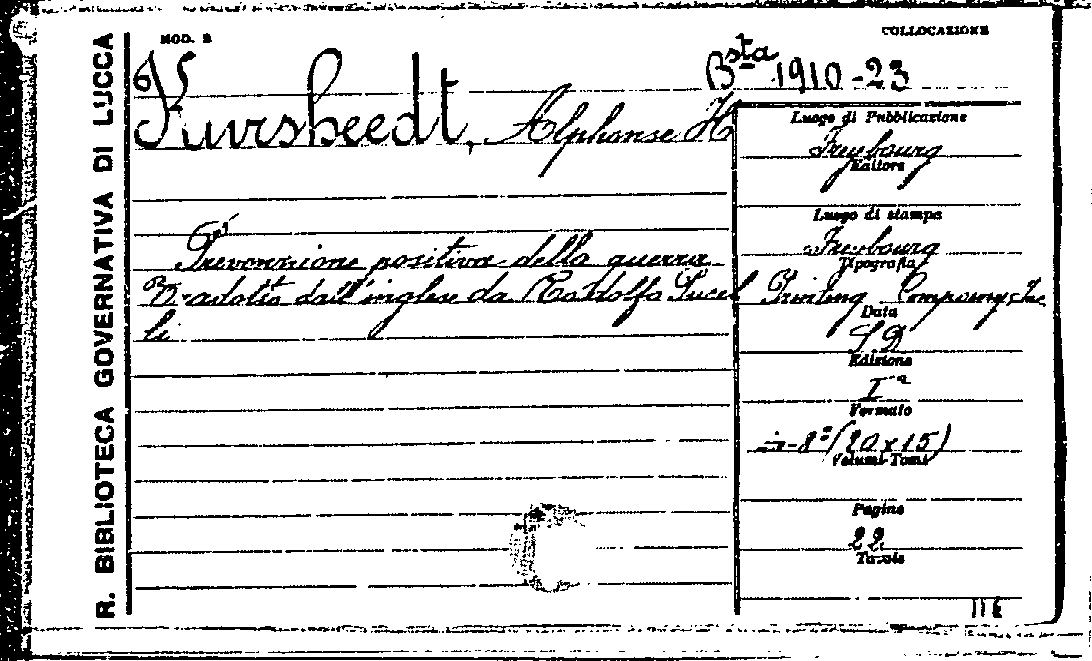 R. BIBLIOTECA GOVERNATIVA DI LUCCA
MOD. 2
COLLOCAZIONE
Bsta 1910-23
Kursheedt, Alphonse H
Prevenzione positiva della guerra
da
li
Luogo di Pubblicazione
Freybourg
Editore
Luogo di stampa
Freybourg
Tipografia
Printing Company, Inc
Data
S D
Edizione
Iª
Formato
in-8º (20x15)
Volumi-Tomi
Pagine
22
Tavole